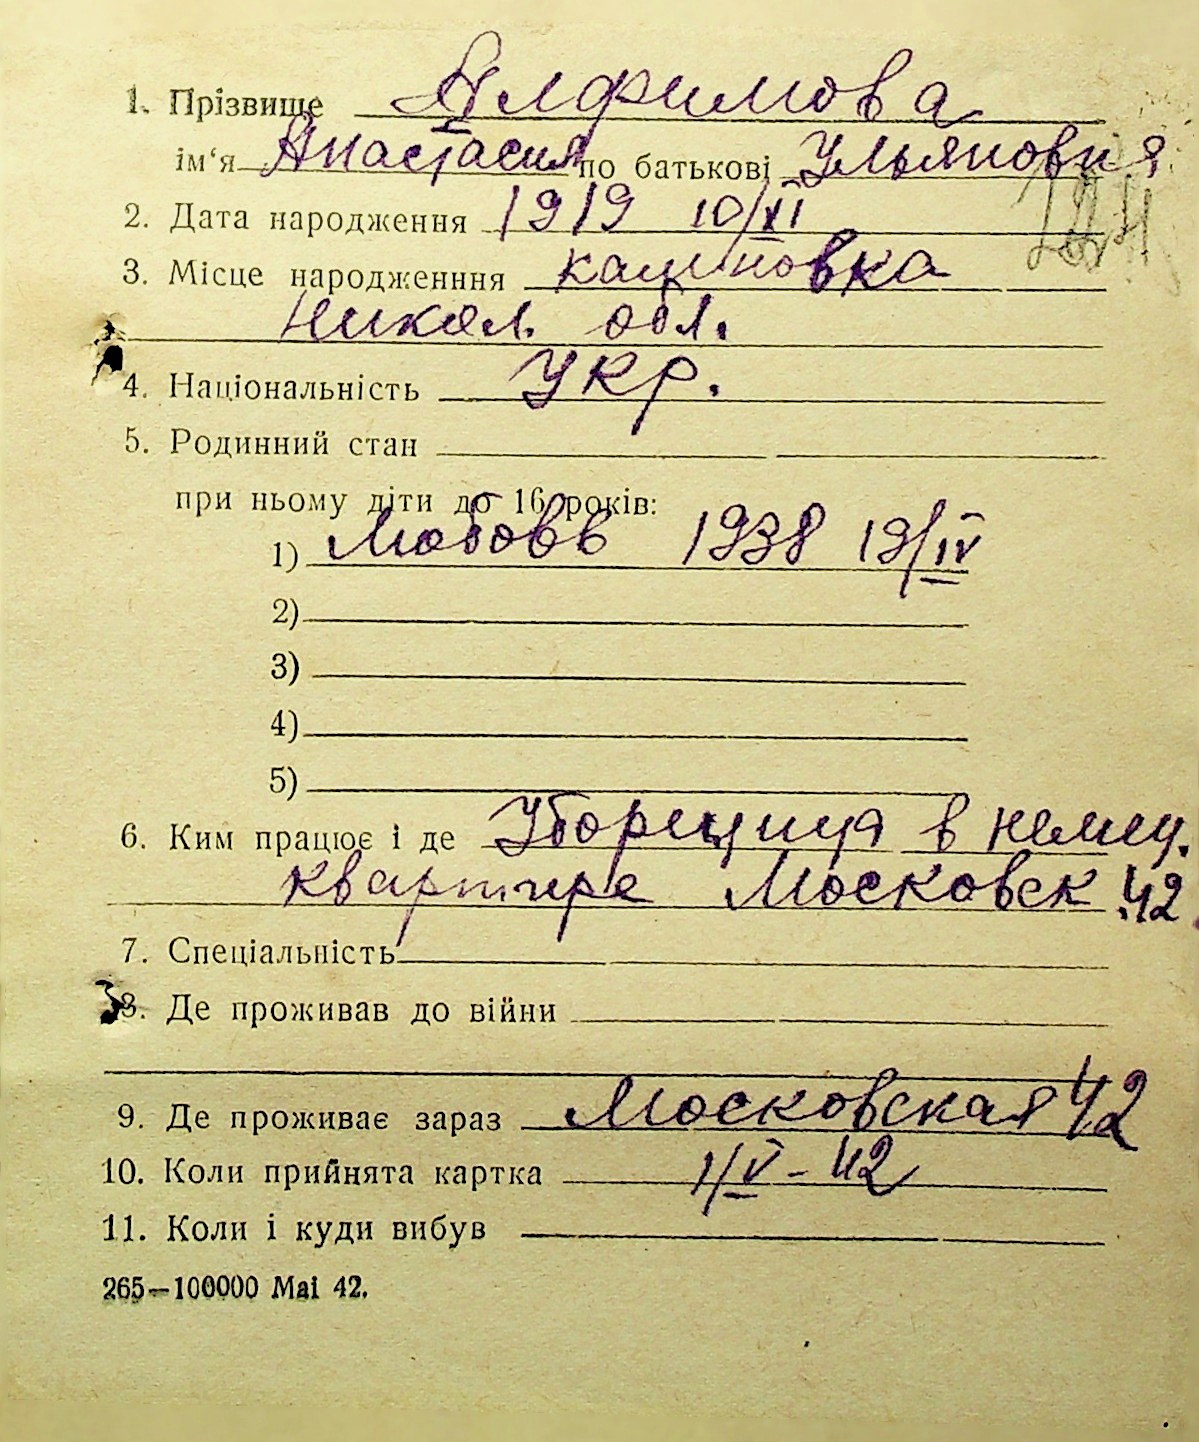 1. Прізвище Алфимова
ім‘я Анастасия по батькові Ульяновня
2. Дата народження 1919 10/XI
3. Місце народженння калиновка
Никол. обл.
4. Національність Укр.
5. Родинний стан
при ньому діти до 16 років:
1) Любовь 1938 19/IV
2)
3)
4)
5)
6. Ким працює і де Уборщица в немец.
квартире Московск. 42
7. Спеціальність
8. Де проживав до війни
9. Де проживає зараз Московская 42
10. Коли прийнята картка 1/V - 42
11. Коли і куди вибув
265—100000 Mai 42.